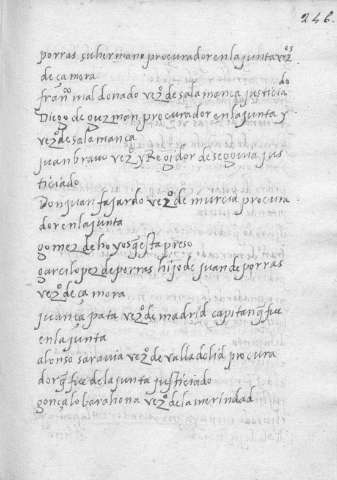 246.
porras su hermano procurador en la junta vezos
de çamora
fran^co maldonado vez^o de salamanca justicia^do
Diego de guzman procurador en la junta y
vez^o de salamanca
juan bravo vez^o y Regidor de segovia jus
ticiado
Don juan fajardo vez^o de murcia procura
dor en la junta
gomez de hoyos q̃ esta preso
garcilopez de porras hijo de juan de porras
vez^o de çamora
juan çapata vez^o de madrid capitan q̃ fue
en la junta
alonso saravia vez^o de valladolid procura
dor q̃ fue de la junta justiciado
gonçalo barahona vez^o de la merindad